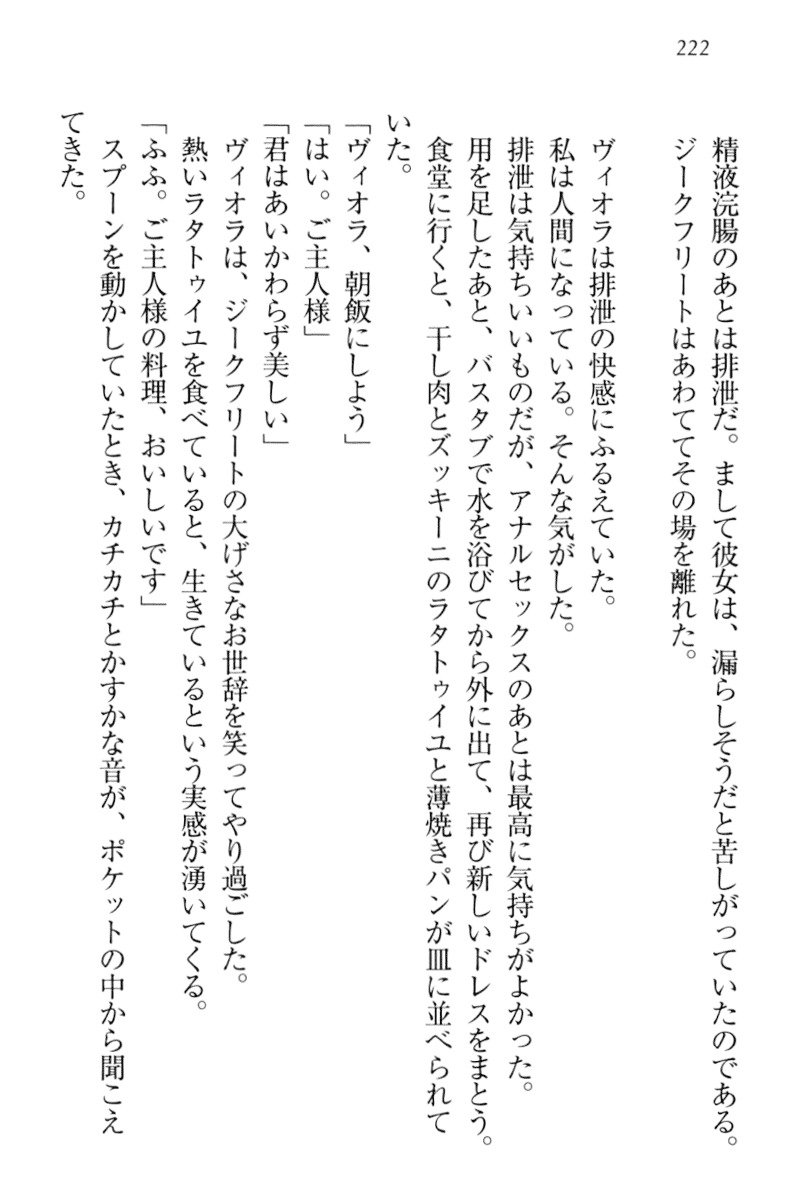 222
精液浣腸のあとは排泄だ。まして彼女は、漏らしそうだと苦しがっていたのである。
ジークフリートはあわててその場を離れた。
ヴィオラは排泄の快感にふるえていた。
私は人間になっている。そんな気がした。
排泄は気持ちいいものだが、アナルセックスのあとは最高に気持ちがよかった。
用を足したあと、バスタブで水を浴びてから外に出て、再び新しいドレスをまとう。
食堂に行くと、干し肉とズッキーニのラタトゥイユと薄焼きパンが皿に並べられて
いた。
「ヴィオラ、朝飯にしよう」
「はい。ご主人様」
「君はあいかわらず美しい」
ヴィオラは、ジークフリートの大げさなお世辞を笑ってやり過ごした。
熱いラタトゥイユを食べていると、生きているという実感が湧いてくる。
「ふふ。ご主人様の料理、おいしいです」
スプーンを動かしていたとき、カチカチとかすかな音が、ポケットの中から聞こえ
てきた。